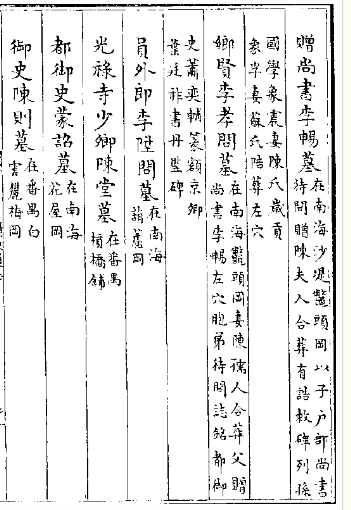 贈尚書李暢墓在南海沙堤鼇頭岡以子戶部尚書
待問贈陳夫人合葬有誥敕碑列孫
國學象袁妻陳氏歲貢
象半妻蘇氏陪葬左穴
鄉賢李孝問墓在南海鼇頭岡妻陳孺人合葬父贈
尚書李暢左穴胞弟待問誌銘都御
史蕭奕輔篆額京卿
葉廷祚書丹豎碑
員外郎李陞問墓在南海
蕉岡
光祿寺少卿陳堂墓在番禺
橫橋舖
都御史蒙詔墓在南海
花屋岡
御史陳則墓在番禺白
雲麓梅岡